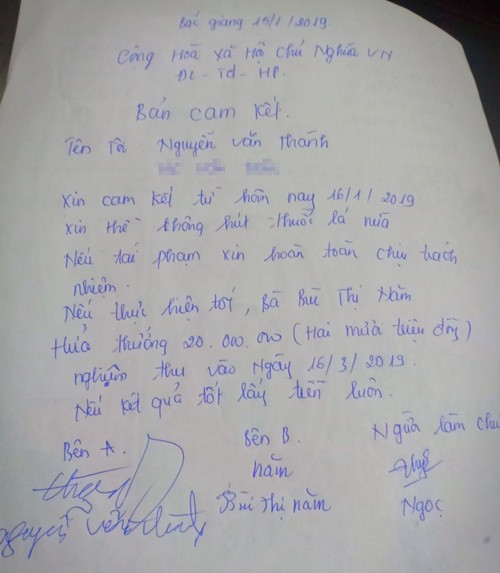 Bắc giang 15/1/2019
Cộng Hoà Xã Hội Chủ Nghĩa VN
ĐL - Td - HP.
Bản cam kết.
Tên Tôi Nguyễn văn Thành
Xin cam kết từ hôm nay 16/1/2019
xin thề không hút thuốc lá nữa
Nếu tái phạm xin hoàn toàn chịu trách
nhiệm.
Nếu thực hiện tốt, Bà Bùi Thị Năm
Hứa thưởng 20.000.000 (Hai mươi triệu đồng)
nghiệm thu vào Ngày 16/3/2019.
Nếu kết quả tốt lấy tiền luôn.
Bên A. Bên B. Người làm
năm
Nguyễn văn Bùi Thị năm Ngọc